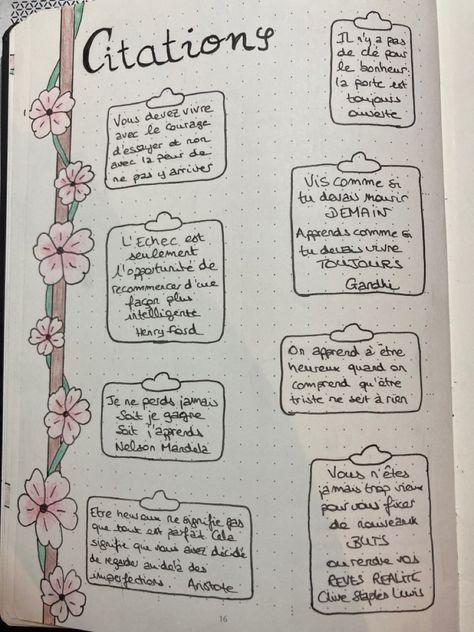 Citations
Il n'y a pas
de clé pour
le bonheur
la porte est
toujours
ouverte
Vous devez vivre
avec le courage
d'essayer et non
avec la peur de
ne pas y arriver
Vis comme si
tu devais mourir
DEMAIN
Apprends comme si
tu devais vivre
TOUJOURS
Gandhi
L'Echec est
seulement
l'opportunité de
recommencer d'une
façon plus
intelligente
Henry Ford
On apprend à être
heureux quand on
comprend qu'être
triste ne sert à rien
Je ne perds jamais
Soit je gagne
Soit j'apprends
Nelson Mandela
Vous n'êtes
jamais trop vieux
pour vous fixer
de nouveaux
BUTS
ou rendre vos
REVES REALITE
Clive Staples Lewis
Etre heureux ne signifie pas
que tout est parfait. Cela
signifie que vous avez décidé
de regarder au delà des
imperfections. Aristote
16